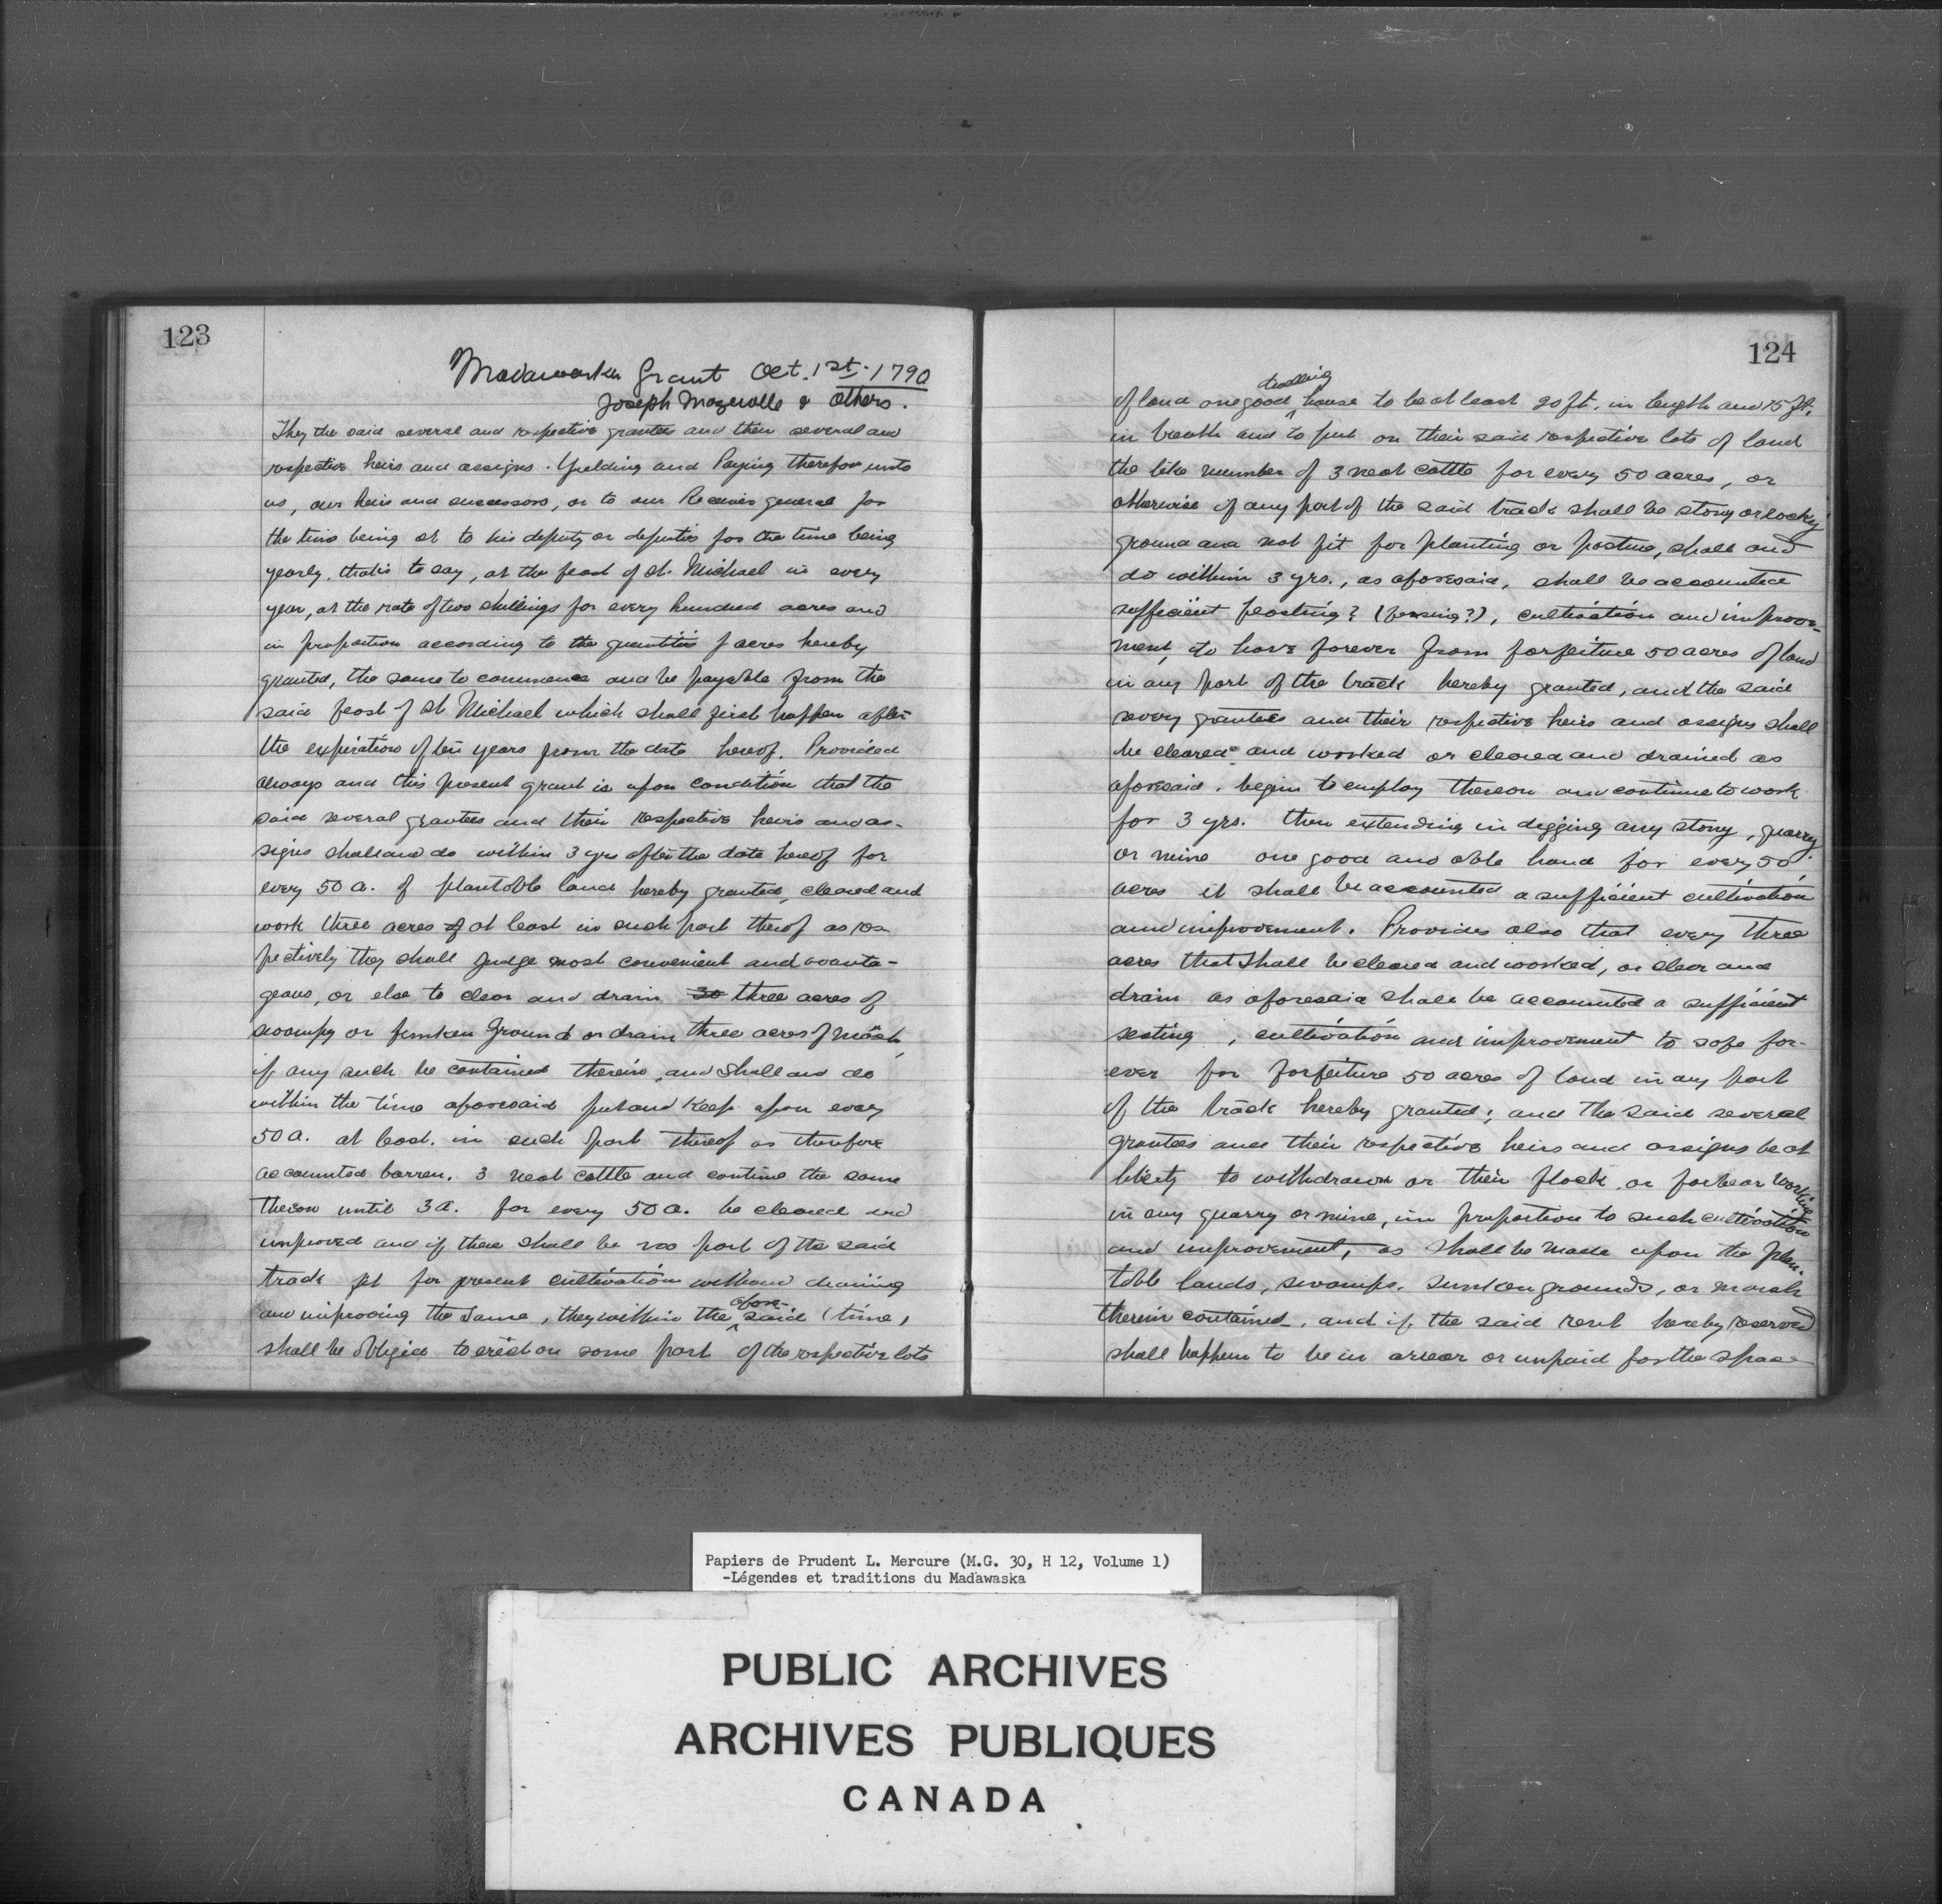 123
Madawaska Grant Oct. 1st. 1790
Joseph Mazerolle & Others.
They the said several and respective grantees and their several and
respective heirs and assigns. Yielding and Paying therefor unto
us, our heirs and successors, or to our Receiver general for
the time being or to his deputy or deputies for the time being
yearly, that is to say, at the feast of St. Michael in every
year, at the rate of two shillings for every hundred acres and
in proportion according to the quantities of acres hereby
granted, the same to commence and be payable from the
said feast of St Michael which shall first happen after
the expiration of ten years from the date hereof. Provided
always and this present grant is upon condition that the
said several grantees and their respective heirs and as-
signs shall and do within 3 yrs after the date hereof for
every 50 a. of plantable land hereby granted, cleared and
work three acres of at least in such part therof as res-
pectively they shall judge most convenient and avanta-
geous, or else to clear and drain 30 three acres of
swampy or sunken ground or drain three acres of marsh,
if any such be contained therein, and shall and do
within the time aforesaid put and keep upon every
50 a. at least. in such part thereof as therefore
accounted barren. 3 neat cattle and continue the same
thereon until 3 a. for every 50 a. be cleared and
improved and if there shall be no part of the said
track fit for present cultivation without draining
and improving the same, they within the afore- said (time,
shall be obliged to erect on some part of the respective lots
124
of land one good dwelling house to be at least 20 ft. in length and 15 ft.
in breath and to put on their said respective lots of land
the like number of 3 neat cattle for every 50 acres, or
otherwise if any part of the said track shall be stony or rocky
ground and not fit for planting or pasture, shall and
do within 3 yrs., as aforesaid, shall be accounted
sufficient ? (?), cultivation and improve-
ment, to have forever from forfeiture 50 acres of land
in any part of the track hereby granted, and the said
severy grantees and their respective heirs and assigns shall
be cleared and worked or cleared and drained as
aforesaid. begin to employ thereon and continue to work
for 3 yrs. then extending in digging any stony, quarry
or mine one good and able hand for every 50
acres it shall be accounted a sufficient cultivation
and improvement. Provides also that every three
acres that shall be cleared and worked, or clear and
drain as aforesaid shall be accounted a sufficient
seating, cultivation and improvement to safe for-
ever for forfeiture 50 acres of land in any part
of the track hereby granted; and the said several
grantees and their respective heirs and assigns be at
liberty to withdrawn or their flock, or forbear working
in any quarry or mine, in proportion to such cultivation
and improvement, as shall be made upon the plan-
table lands, swamps, sunken grounds, or marsh
therein contained, and if the said rent hereby reserved
shall happen to be in arrear or unpaid for the space
Papiers de Prudent L. Mercure (M.G. 30, H 12, Volume 1)
-Légendes et traditions du Madawaska
PUBLIC ARCHIVES
ARCHIVES PUBLIQUES
CANADA